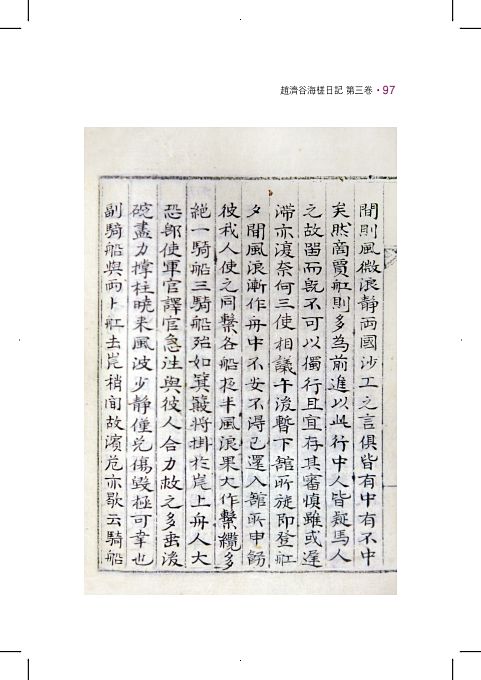 趙濟谷海槎日記 第三卷 · 97
間則風微浪靜両國沙工之言俱皆有中有不中
矣然商賈舡則多為前進以此行中人皆疑馬人
之故留而旣不可以獨行且宜存其審愼雖或遲
滯亦復奈何三使相議午後暫下舘所旋即登舡
夕聞風浪漸作舟中不安不得已還入舘所申飭
彼我人使之同繫各船夜半風浪果大作繫纜多
絶一騎船三騎船殆如箕簸將掛於岸上舟人大
恐即使軍官譯官急往與彼人合力救之多出後
碇盡力撑柱曉来風波少靜僅免傷毀極可幸也
副騎船與両卜舡去岸稍間故濱危亦歇云騎船